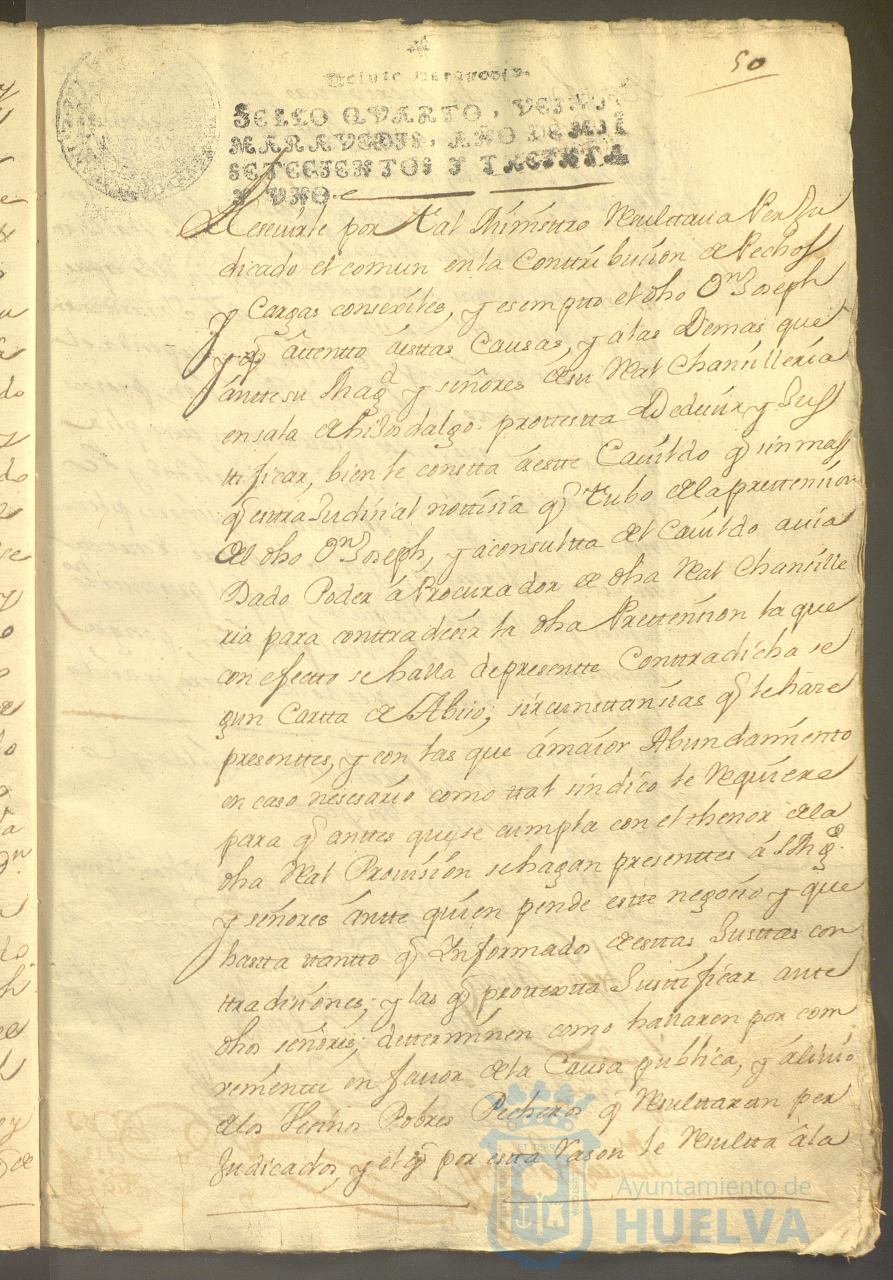 50
Veinte maravedis.
SELLO QVARTO, VEINTE
MARAVEDIS, AÑO DE MIL
SETECIENTOS Y TREINTA
Y UNO.
por Real Ministro Resulttaua Per Ju
dicado el comun en la Conttribucion de Pechos
y Cargas consexiles, y esempto el dho Dn Joseph
y q attentto a esttas Causas, y a las Demas que
antte su Magd y señores de su Real Chansilleria
en sala de hixos dalgo prottestta Deducir y Jus
ttificar, bien le constta a estte Cavildo q sin mas
q esttra Judisial nottisia q tubo de la prettension
del dho Dn Joseph, y a consultta del Cavildo avia
Dado Poder a Procurador de dha Real Chansille
ria para conttradecir la dha Prettension la que
con efectto se halla de presentte Conttradicha se
gun Cartta de Abiso, sircunsttansias q le haze
presenttes, y con las que a maior Abundamiento
en caso nesesario como ttal sindico le Requiere
para q anttes que se cumpla con el thenor de la
dha Real Provision se hagan presenttes a S Magd
y señores antte quien pende estte negosio y que
hastta ttantto q Informados de esttas Justtas con
ttradisiones, y las q prottextta Justtificar ante
dhos señores, determinen como hallaren por com
beniente en favor de la Causa publica, y alivio
de los Vesinos Pobres Pecheros q Resulttaran per
Judicados, y el q por estta Rason le Resultta a la
Ayuntamiento de
HUELVA